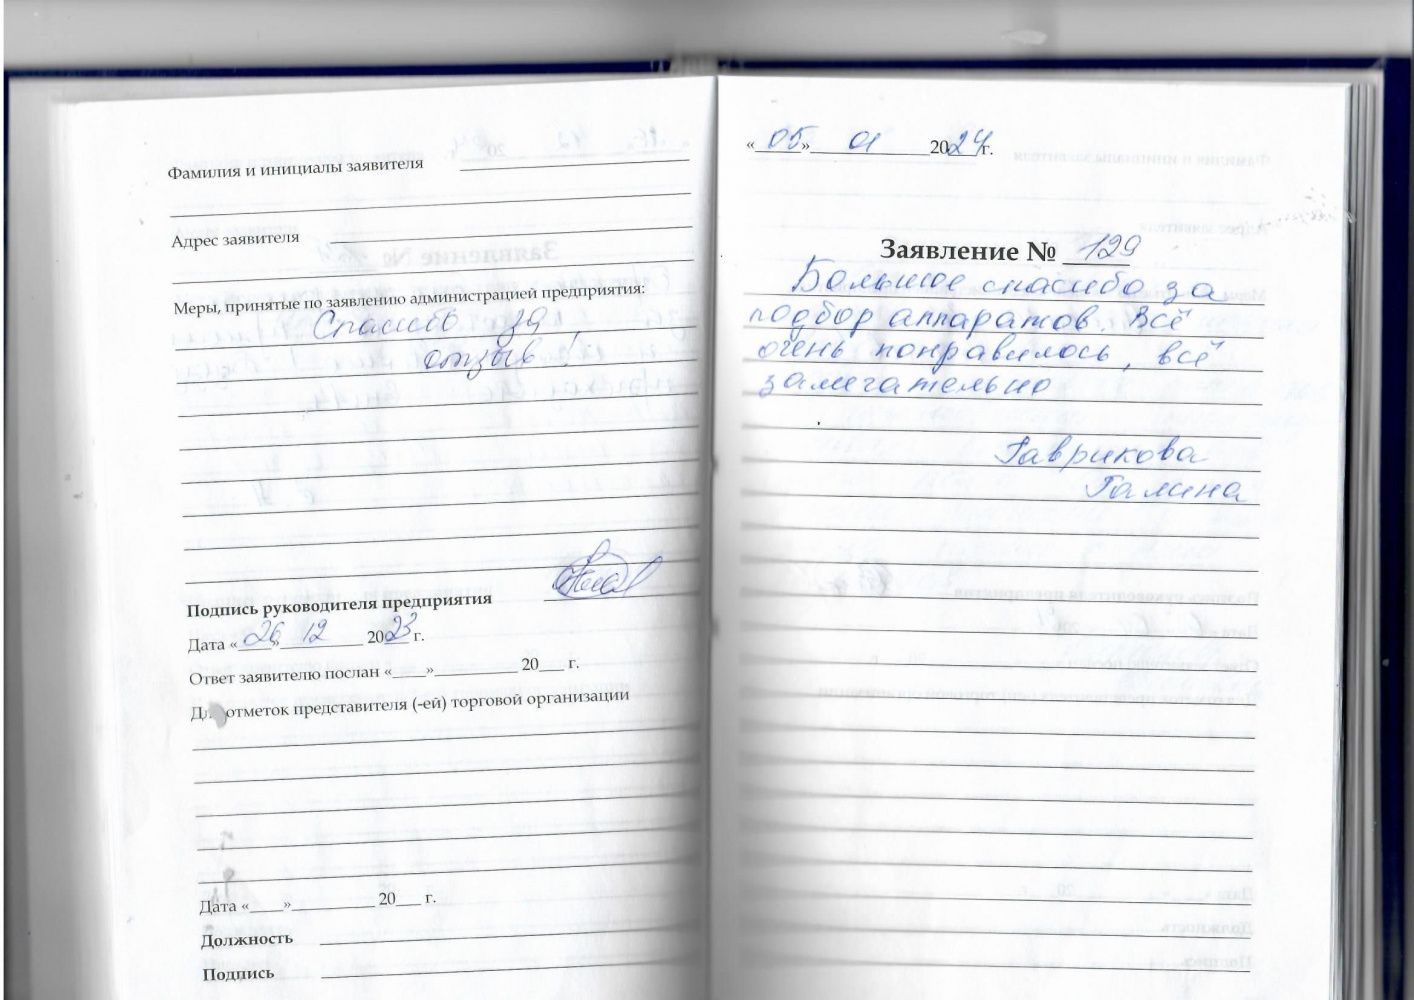 Фамилия и инициалы заявителя
Адрес заявителя
Меры, принятые по заявлению администрацией предприятия:
Спасибо за
отзыв!
Подпись руководителя предприятия
Дата «26» 12 2023 г.
Ответ заявителю послан «____»__________ 20___ г.
Для отметок представителя (-ей) торговой организации
Дата «____»__________ 20___ г.
Должность
Подпись
«05» 01 2024 г.
Заявление № 129
Большое спасибо за
подбор аппаратов. Всё
очень понравилось, всё
замечательно
Гаврикова
Галина